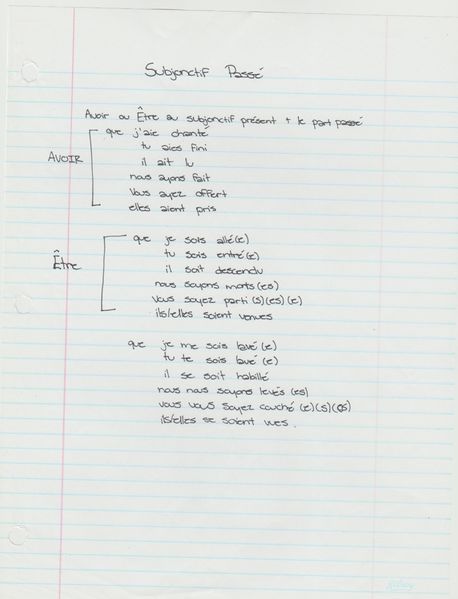 Subjonctif Passé
Avoir ou Être au subjonctif présent + le part passé
AVOIR
que j'aie chanté
tu aies fini
il ait lu
nous ayons fait
Vous ayez offert
elles aient pris
Être
que je sois allé(e)
tu sois entré(e)
il soit descendu
nous soyons morts(es)
Vous soyez parti(s)(es)(e)
ils/elles soient venues
que je me sois lavé(e)
tu te sois lavé(e)
il se soit habillé
nous nous soyons levés(es)
vous vous soyez couché(e)(s)(es)
ils/elles se soient vues.